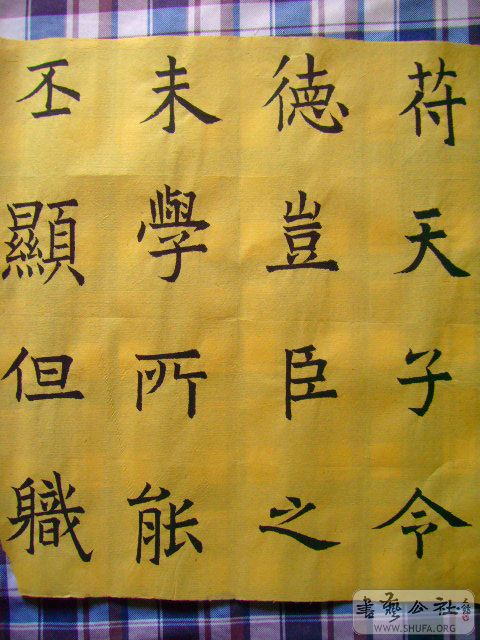 苻天子令
德豈臣之
未學所能
丕顯但職
書藝公社
WWW.SHUFA.ORG